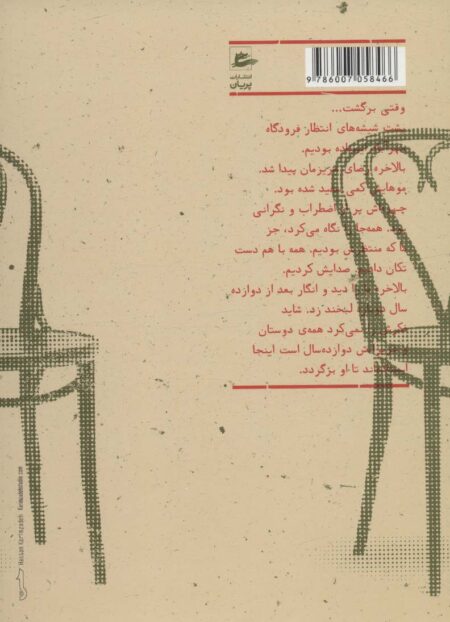 انتشارات
پریان
9 786007 058466
وقتی برگشت...
پشت شیشه‌های انتظار فرودگاه
بودیم.
بالاخره پیدا شد.
موهایش کمی سفید شده بود.
چهره‌اش پر اضطراب و نگرانی
نگاه می‌کرد، جز
ما که بودیم. همه با هم دست
تکان صدایش کردیم.
بالاخره دید و انگار بعد از دوازده
سال لبخند زد. شاید
نمی‌کرد همه‌ی دوستان
دوازده‌سال است اینجا
تا او برگردد.
Hassan Karimzadeh